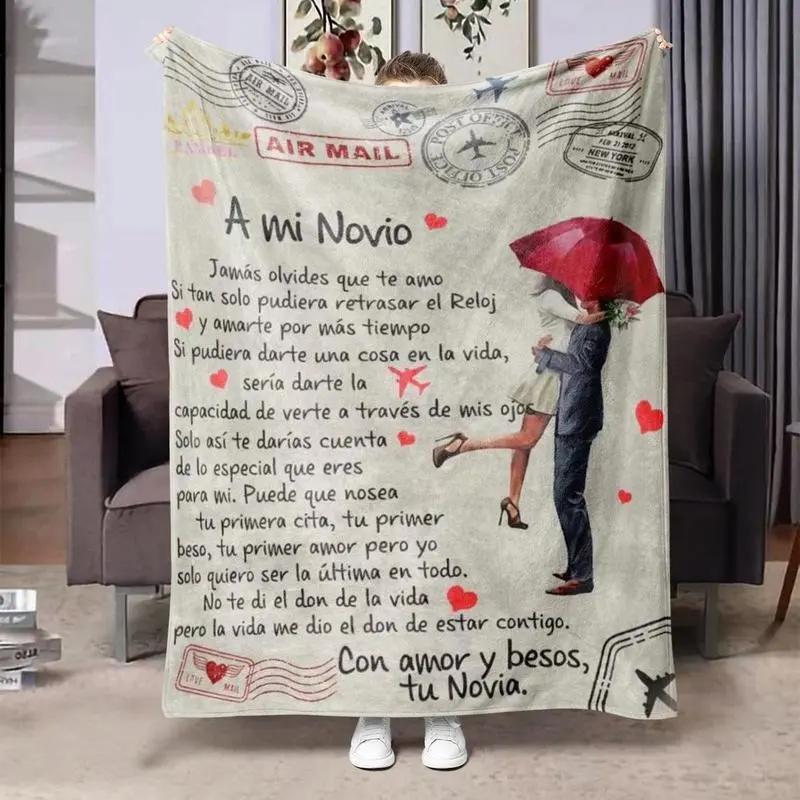 AIR MAIL
ARRIVAL
POST OFFICE
POST OFFICE
LOVE MAIL
ARRIVAL
FEB 21 2012
NEW YORK
AIR MAIL
A mi Novio
Jamás olvides que te amo
Si tan solo pudiera retrasar el Reloj
y amarte por más tiempo
Si pudiera darte una cosa en la vida,
sería darte la
capacidad de verte a través de mis ojos
Solo así te darías cuenta
de lo especial que eres
para mi. Puede que nosea
tu primera cita, tu primer
beso, tu primer amor pero yo
solo quiero ser la última en todo.
No te di el don de la vida
pero la vida me dio el don de estar contigo.
Con amor y besos,
tu Novia.
LOVE MAIL